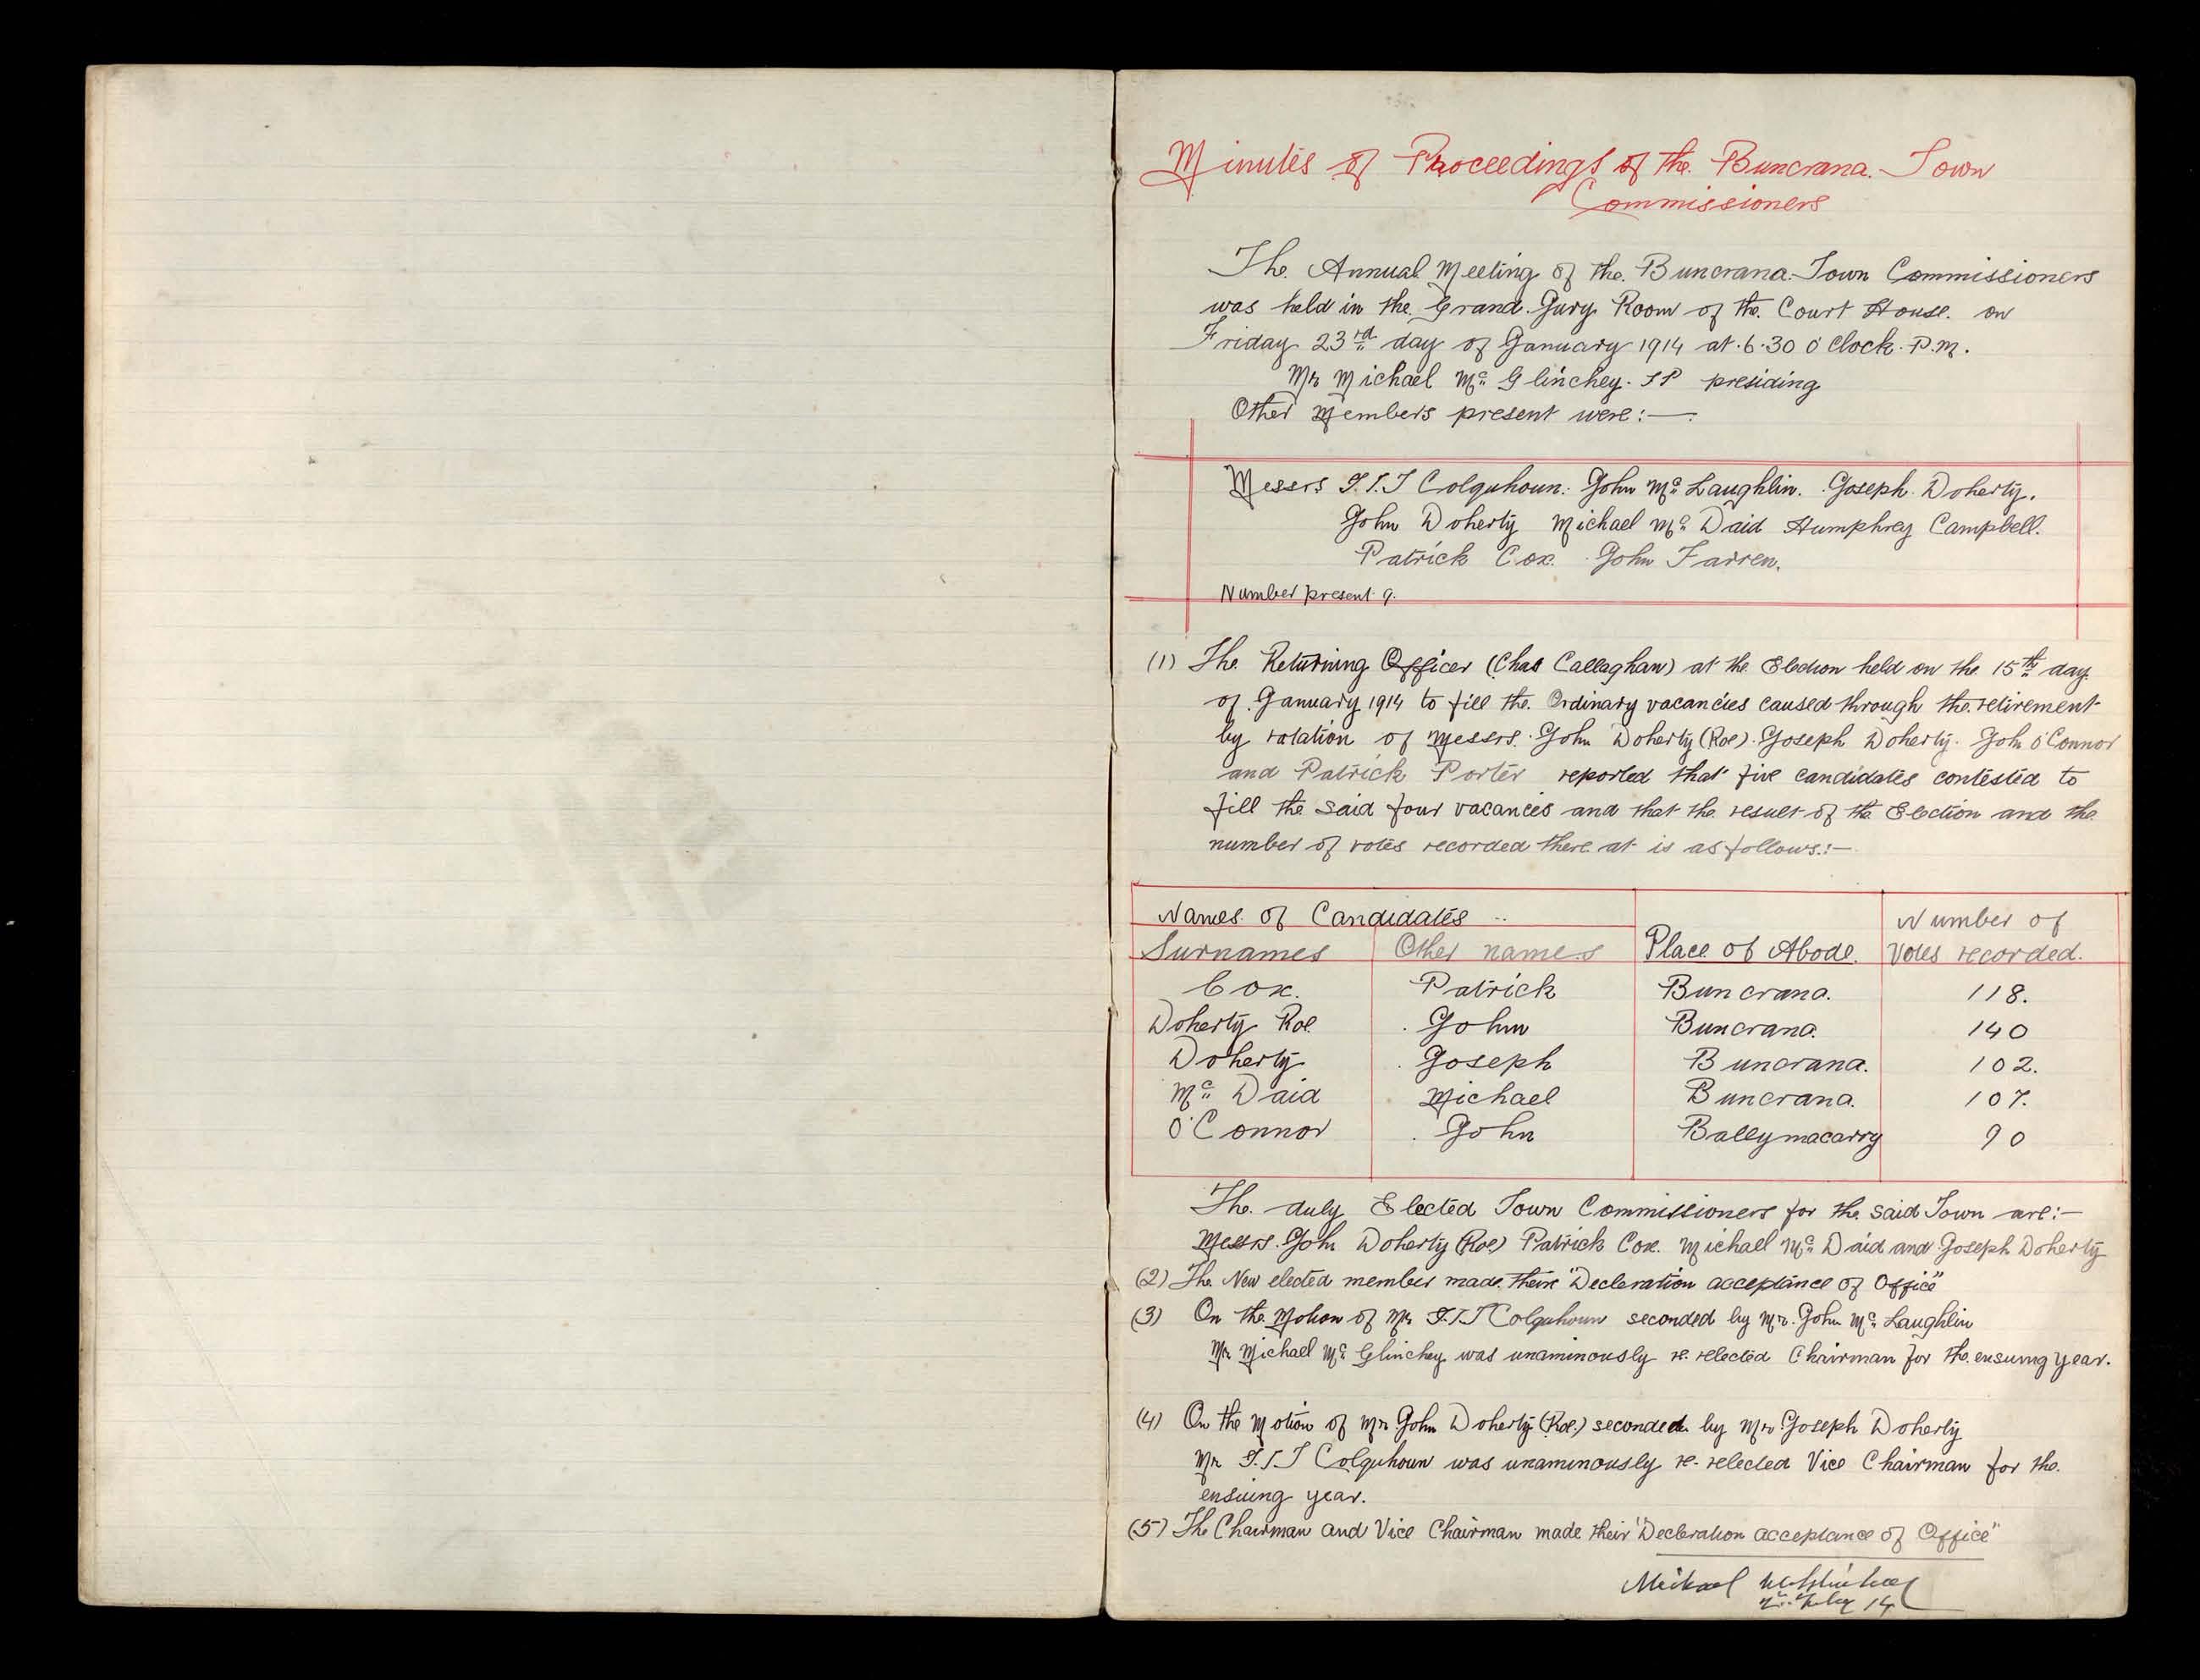 Minutes of Proceedings of the Buncrana Town
Commissioners
The Annual Meeting of the Buncrana Town Commissioners
was held in the Grand Jury Room of the Court House on
Friday 23rd day of January 1914 at 6.30 O'Clock P.M.
Mr Michael Mc Glinchey J P presiding
Other Members present were:—
Messrs Colquhoun. John Mc Laughlin. Joseph Doherty.
John Doherty Michael Mc Daid Humphrey Campbell.
Patrick Cox. John Farren.
Number present 9.
(1) The Returning Officer (Chas Callaghan) at the Election held on the 15th day
of January 1914 to fill the Ordinary vacancies caused through the retirement
by rotation of Messrs. John Doherty (Roe). Joseph Doherty. John O'Connor
and Patrick Porter reported that five candidates contested to
fill the said four vacancies and that the result of the Election and the
number of votes recorded there at is as follows:—
Names of Candidates
Number of
Surnames Other names Place of Abode. Votes recorded.
Cox. Patrick Buncrana. 118.
Doherty Roe John Buncrana. 140
Doherty Joseph Buncrana. 102.
Mc Daid Michael Buncrana. 107.
O'Connor John Ballymacarry 90
The duly Elected Town Commissioners for the said Town are:—
Messrs. John Doherty (Roe) Patrick Cox. Michael Mc Daid and Joseph Doherty
(2) The New elected member made their "Decleration acceptance of Office"
(3) On the Motion of Mr Colquhoun seconded by Mr. John Mc Laughlin
Mr Michael Mc Glinchey was unaminously re-relected Chairman for the ensuing year.
(4) On the Motion of Mr John Doherty (Roe.) seconded by Mr Joseph Doherty
Mr Colquhoun was unaminously re-relected Vice Chairman for the
ensuing year.
(5) The Chairman and Vice Chairman made their "Decleration acceptance of Office"
Michael McGlinchey
14